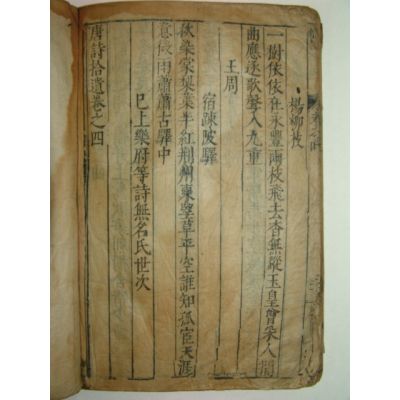 楊柳枝
一樹依依在永豐兩枝飛去杳無蹤玉皇曾采人間
曲應逐歌聲入九重
王周
宿疎陂驛
秋染棠梨葉半紅荆州東望草平空誰知孤宦天涯
意微雨蕭蕭古驛中
已上樂府等詩無名氏世次
唐詩拾遺卷之四